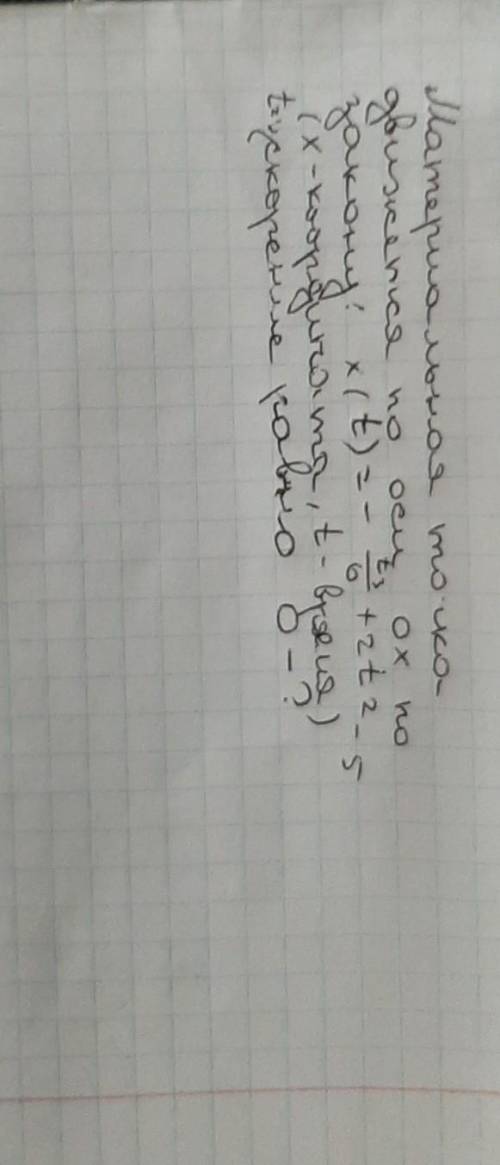 Материальная точка
движется по оси Ox по
закону: x(t) = - t³/6 + 2t² - 5
(x - координата, t - время)
t - ускорение равно 0 - ?